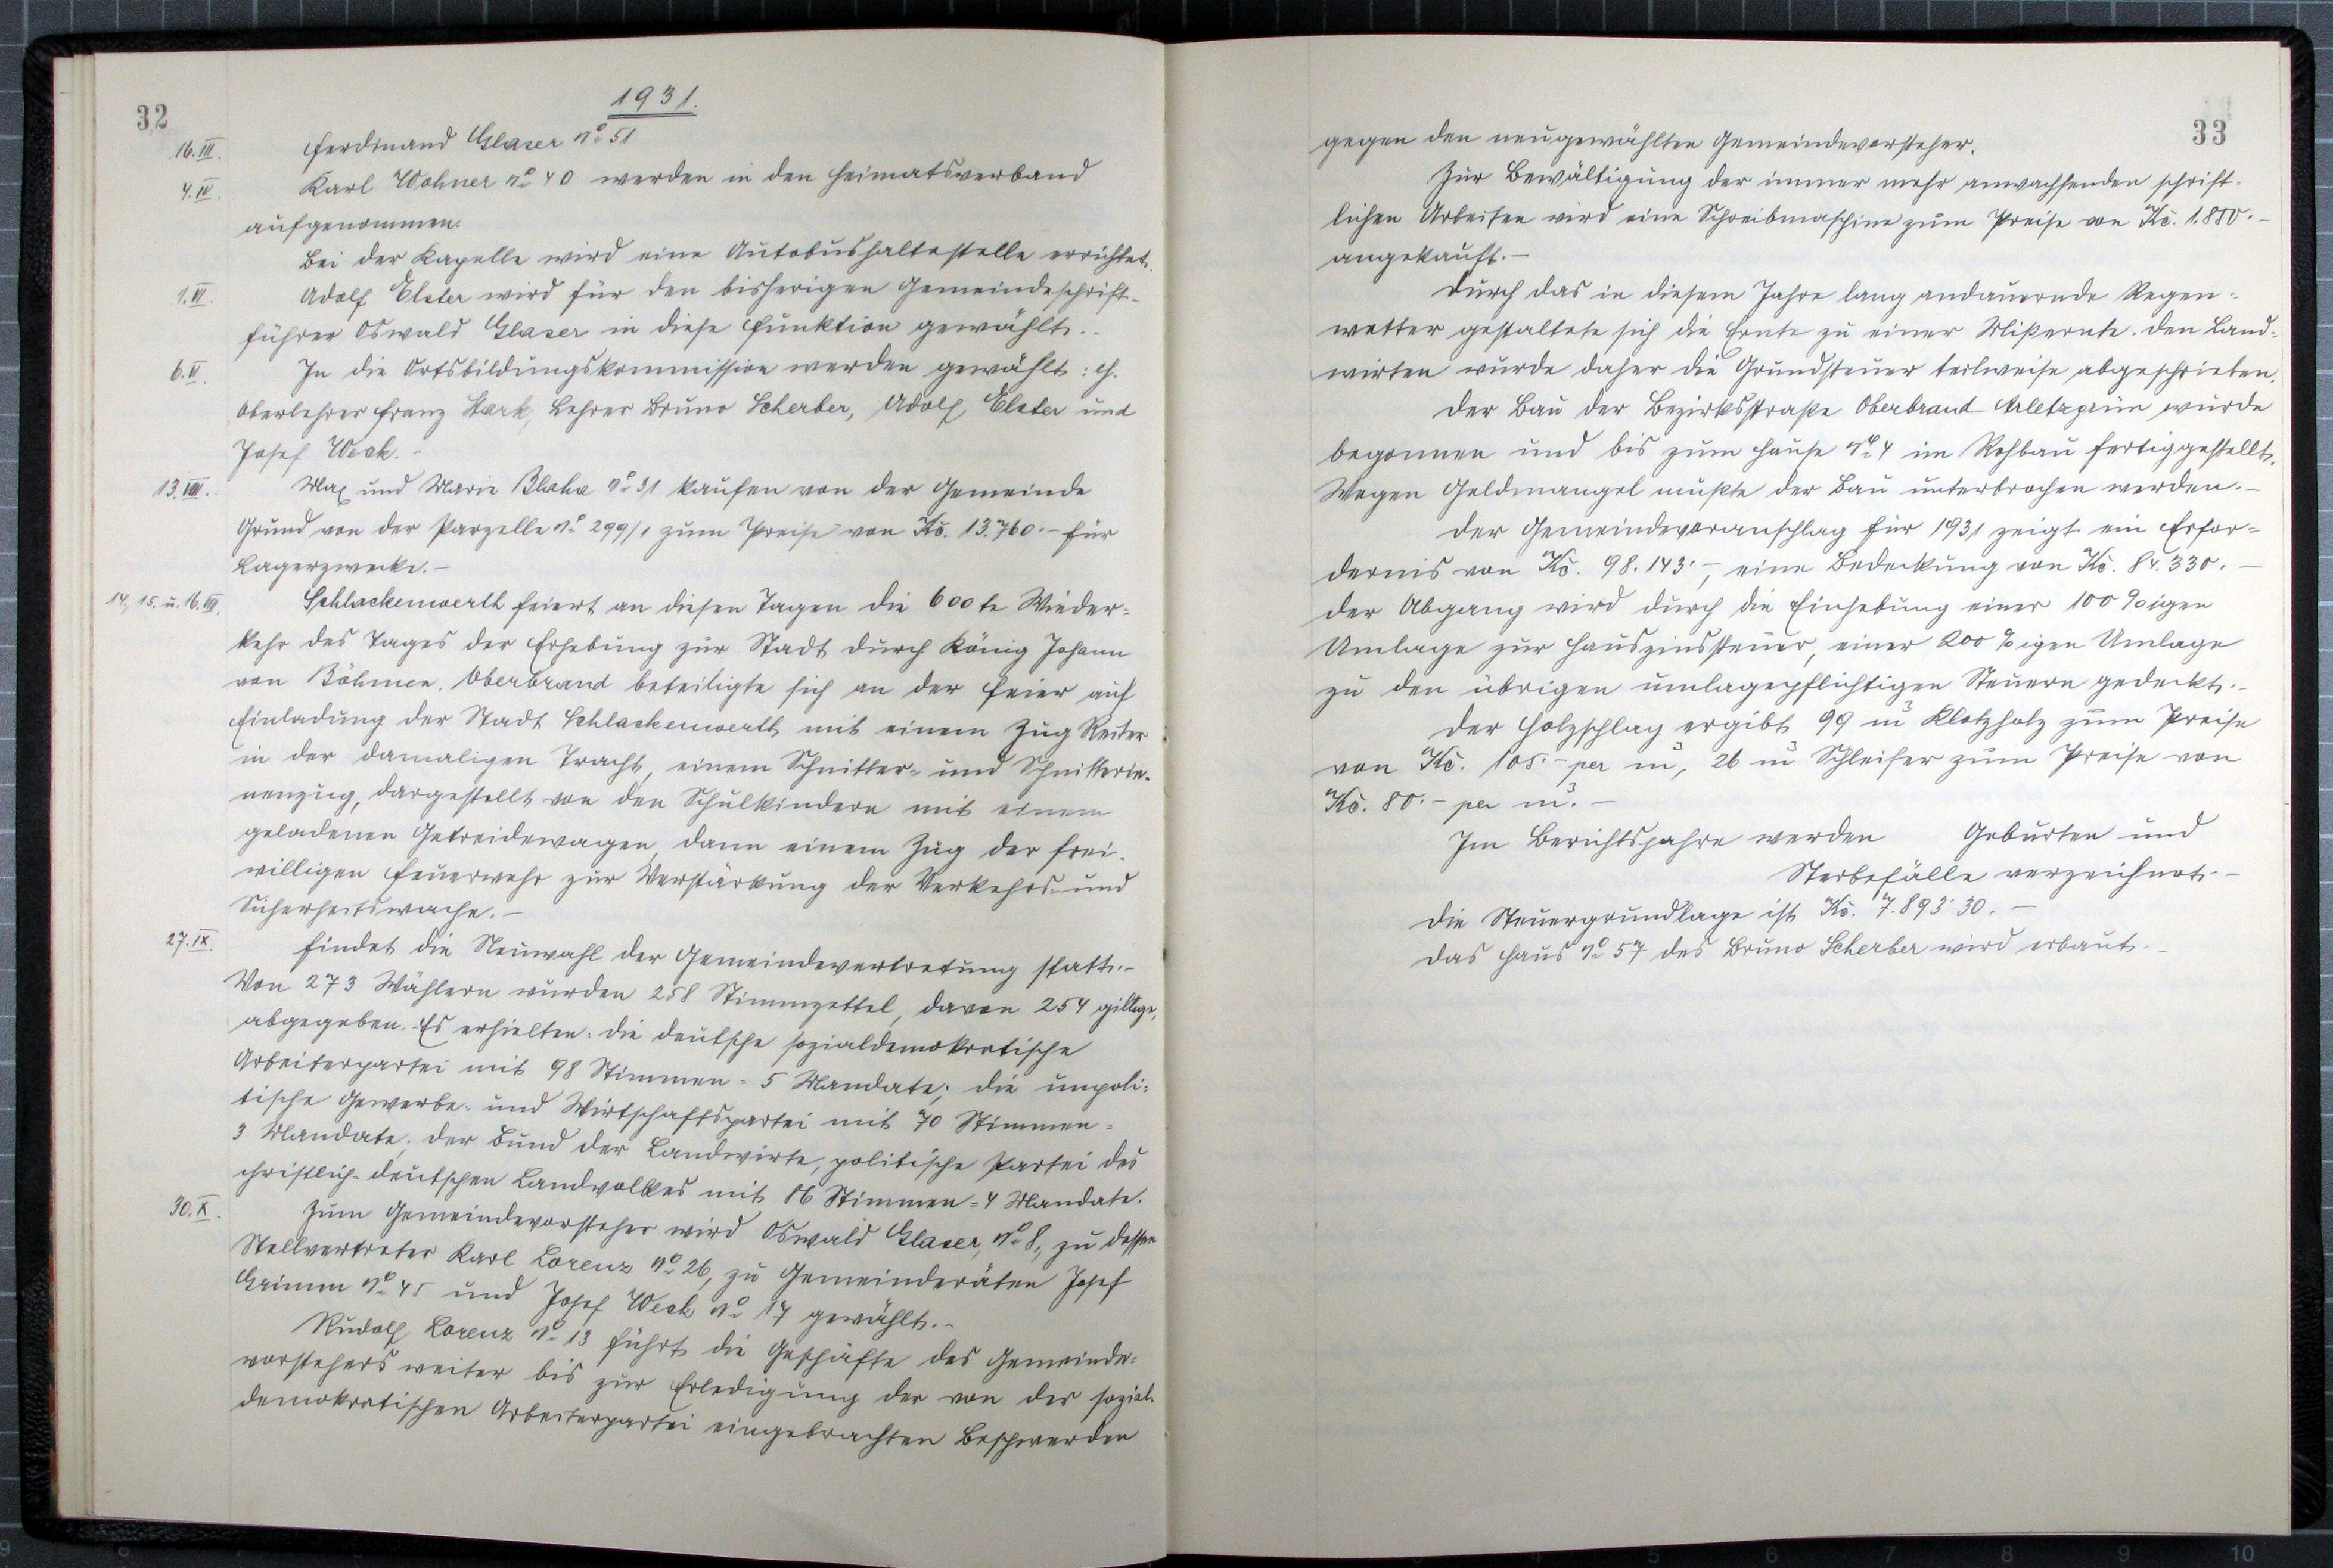 32
1931.
16.III. Ferdinand Glaser No 51
4.IV. Karl Wohner No 40 werden in den Heimatsverband
aufgenommen.
Bei der Kapelle wird eine Autobushaltestelle errichtet.
1.VI. Adolf Elster wird für den bisherigen Gemeindeschrift-
führer Oswald Glaser in diese Funktion gewählt.-
In die Ortsbildungskommission werden gewählt:
Oberlehrer Franz Stark, Lehrer Bruno Scherber, Adolf Elster und
Josef Weck.-
13.VIII. Max und Marie Blaha No 31 kaufen von der Gemeinde
Grund von der Parzelle No 299/1 zum Preise von Kč. 13.760.- für
Lagerzwecke.-
14., 15. u. 16. Schlackenwerth feiert an diesen Tagen die 600te Wieder-
kehr des Tages der Erhebung zur Stadt durch König Johann
von Böhmen. Oberbrand beteiligte sich an der Feier auf
Einladung der Stadt Schlackenwerth mit einem Zug Reiter
in der damaligen Tracht, einem Schnitter- und Schnitterin-
nenzug, dargestellt von den Schulkindern mit einem
geladenen Getreidewagen, dann einem Zug der frei-
willigen Feuerwehr zur Verstärkung der Verkehrs- und
Sicherheitswache.-
27.IX. Findet die Neuwahl der Gemeindevertretung statt.-
Von 273 Wählern wurden 258 Stimmzettel, davon 254 giltige,
abgegeben. Es erhielten: die deutsche sozialdemokratische
Arbeiterpartei mit 98 Stimmen = 5 Mandate; die unpoli-
tische Gewerbe- und Wirtschaftspartei mit 70 Stimmen =
3 Mandate; der Bund der Landwirte, politische Partei des
christlich-deutschen Landvolkes mit 86 Stimmen = 4 Mandate.
30.X. Zum Gemeindevorsteher wird Oswald Glaser, No 8, zu dessen
Stellvertreter Karl Lorenz No 26, zu Gemeinderäten Josef
Grimm No 45 und Josef Weck No 17 gewählt.-
Rudolf Lorenz No 13 führt die Geschäfte des Gemeinde-
vorstehers weiter bis zur Erledigung der von der sozial-
demokratischen Arbeiterpartei eingebrachten Beschwerden
33
gegen den neugewählten Gemeindevorsteher.
Zur Bewältigung der immer mehr anwachsenden schrift-
lichen Arbeiten wird eine Schreibmaschine zum Preise von Kč. 1.850.-
angekauft.-
Durch das in diesem Jahre lang andauernde Regen-
wetter gestaltete sich die Ernte zu einer Mißernte. Den Land-
wirten wurde daher die Grundsteuer teilweise abgeschrieben.
Der Bau der Bezirksstraße Oberbrand-Arletzgrün wurde
begonnen und bis zum Hause No 4 im Rohbau fertiggestellt.
Wegen Geldmangel mußte der Bau unterbrochen werden.-
Der Gemeindevoranschlag für 1931 zeigt ein Erfor-
dernis von Kč. 98.143.-, eine Bedeckung von Kč. 84.330.-
Der Abgang wird durch die Einhebung einer 100%igen
Umlage zur Hauszinssteuer, einer 200%igen Umlage
zu den übrigen umlagepflichtigen Steuern gedeckt.-
Der Holzschlag ergibt 99 m³ Klotzholz zum Preise
von Kč. 105.- per m³, 26 m³ Schleifer zum Preise von
Kč. 80.- per m³.-
Im Berichtsjahre werden Geburten und
Sterbefälle verzeichnet.-
Die Steuergrundlage ist Kč. 7.893.30.-
Das Haus No 57 des Bruno Scherber wird erbaut.-